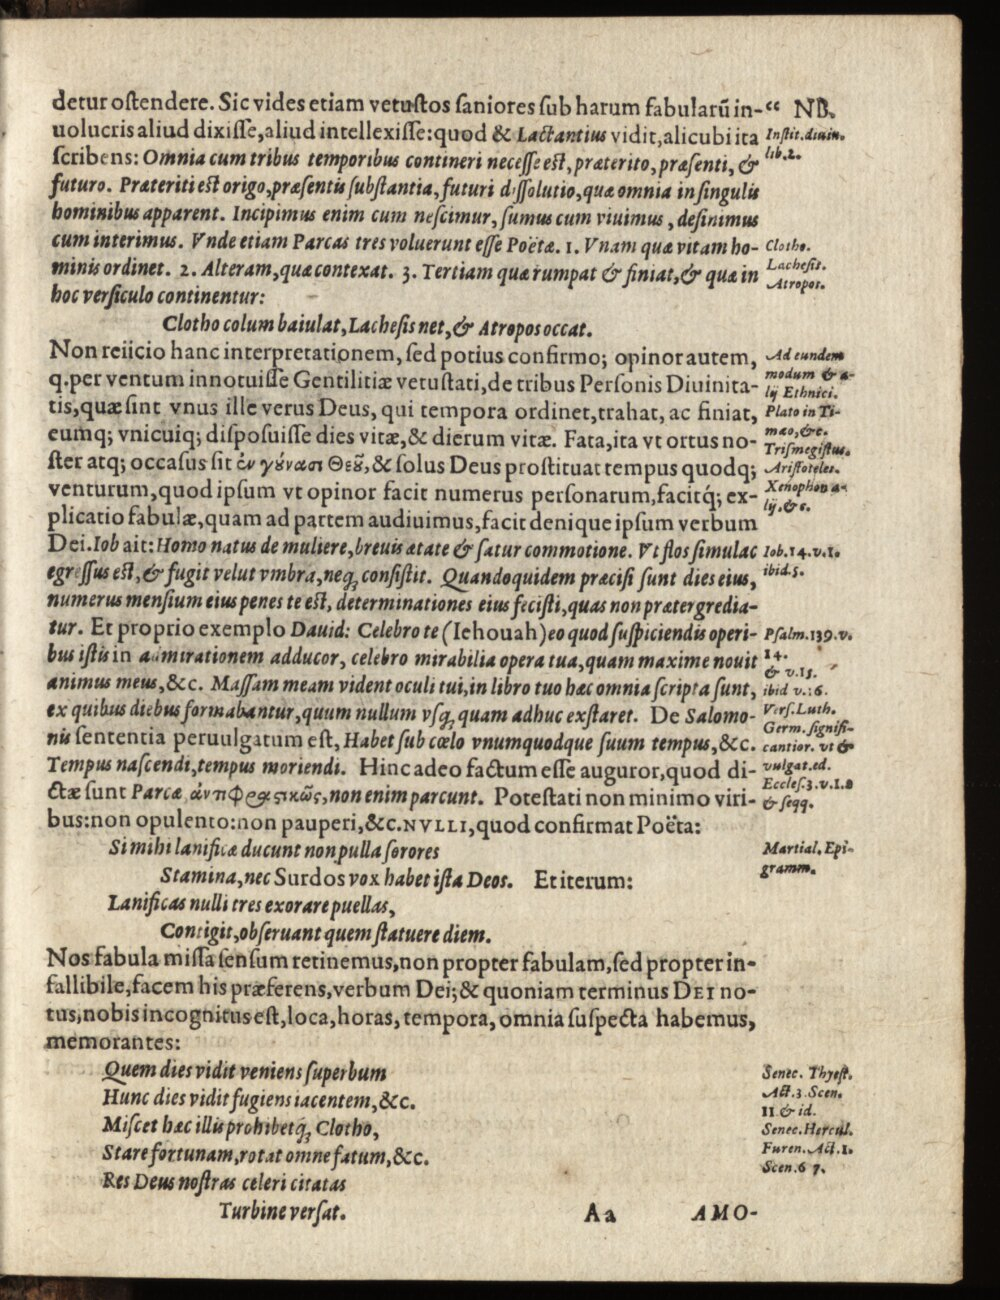 detur ostendere. Sic vides etiam vetustos saniores sub harum fabularũ in- “ NB.
uolucris aliud dixisse, aliud intellexisse: quod & Lactantius vidit, alicubi ita
Instit. diuin.
lib. 2.
scribens: Omnia cum tribus temporibus contineri necesse est, præterito, præsenti, &
futuro. Præteriti est origo, præsentis substantia, futuri dissolutio, quæ omnia in singulis
hominibus apparent. Incipimus enim cum nescimur, sumus cum viuimus, desinimus
cum interimus. Vnde etiam Parcas tres voluerunt esse Poëtæ. 1. Vnam quæ vitam ho-
Clotho.
minis ordinet. 2. Alteram, quæ contexat. 3. Tertiam quæ rumpat & finiat, & quæ in
Lachesis.
Atropos.
hoc versiculo continentur:
Clotho colum baiulat, Lachesis net, & Atropos occat.
Non reiicio hanc interpretationem, sed potius confirmo; opinor autem,
Ad eundem
modum & a-
q. per ventum innotuisse Gentilitiæ vetustati, de tribus Personis Diuinita-
lij Ethnici.
tis, quæ sint vnus ille verus Deus, qui tempora ordinet, trahat, ac finiat,
Plato in Ti-
mæo, &c.
eumq; vnicuiq; disposuisse dies vitæ, & dierum vitæ. Fata, ita vt ortus no-
Trismegistus.
ster atq; occasus sit ἐν γούνασι Θεοῦ, & solus Deus prostituat tempus quodq;
Aristoteles.
venturum, quod ipsum vt opinor facit numerus personarum, facitq́; ex-
Xenophon a-
lij. &c.
plicatio fabulæ, quam ad partem audiuimus, facit denique ipsum verbum
Dei. Iob ait: Homo natus de muliere, breuis ætate & satur commotione. Vt flos simulac
Iob. 14. v. 1.
egressus est, & fugit velut vmbra, neq; consistit. Quandoquidem præcisi sunt dies eius,
ibid. 5.
numerus mensium eius penes te est, determinationes eius fecisti, quas non prætergredia-
tur. Et proprio exemplo Dauid: Celebro te (Iehouah) eo quod suspiciendis operi-
Psalm. 139. v.
14.
bus istis in admirationem adducor, celebro mirabilia opera tua, quam maxime nouit
& v. 15.
animus meus, &c. Massam meam vident oculi tui, in libro tuo hæc omnia scripta sunt,
ibid v. 16.
ex quibus diebus formabantur, quum nullum vsq; quam adhuc exstaret. De Salomo-
Vers. Luth.
Germ. signifi-
nis sententia peruulgatum est, Habet sub cœlo vnumquodque suum tempus, &c.
cantior. vt &
Tempus nascendi, tempus moriendi. Hinc adeo factum esse auguror, quod di-
vulgat. ed.
Eccles. 3. v. 1. 2
ctæ sunt Parcæ ἀντιφραστικῶς, non enim parcunt. Potestati non minimo viri-
& seqq.
bus: non opulento: non pauperi, &c. NVLLI, quod confirmat Poëta:
Si mihi lanificæ ducunt non pulla sorores
Martial. Epi-
gramm.
Stamina, nec Surdos vox habet ista Deos. Et iterum:
Lanificas nulli tres exorare puellas,
Contigit, obseruant quem statuere diem.
Nos fabula missa sensum retinemus, non propter fabulam, sed propter in-
fallibile, facem his præferens, verbum Dei; & quoniam terminus DEI no-
tus, nobis incognitus est, loca, horas, tempora, omnia suspecta habemus,
memorantes:
Quem dies vidit veniens superbum
Senec. Thyest.
Hunc dies vidit fugiens iacentem, &c.
Act. 3 Scen.
11 & id.
Miscet hæc illis prohibetq́; Clotho,
Senec. Hercul.
Stare fortunam, rotat omne fatum, &c.
Furen. Act. 1.
Scen. 6 7.
Res Deus nostras celeri citatas
Turbine versat.
Aa AMO-